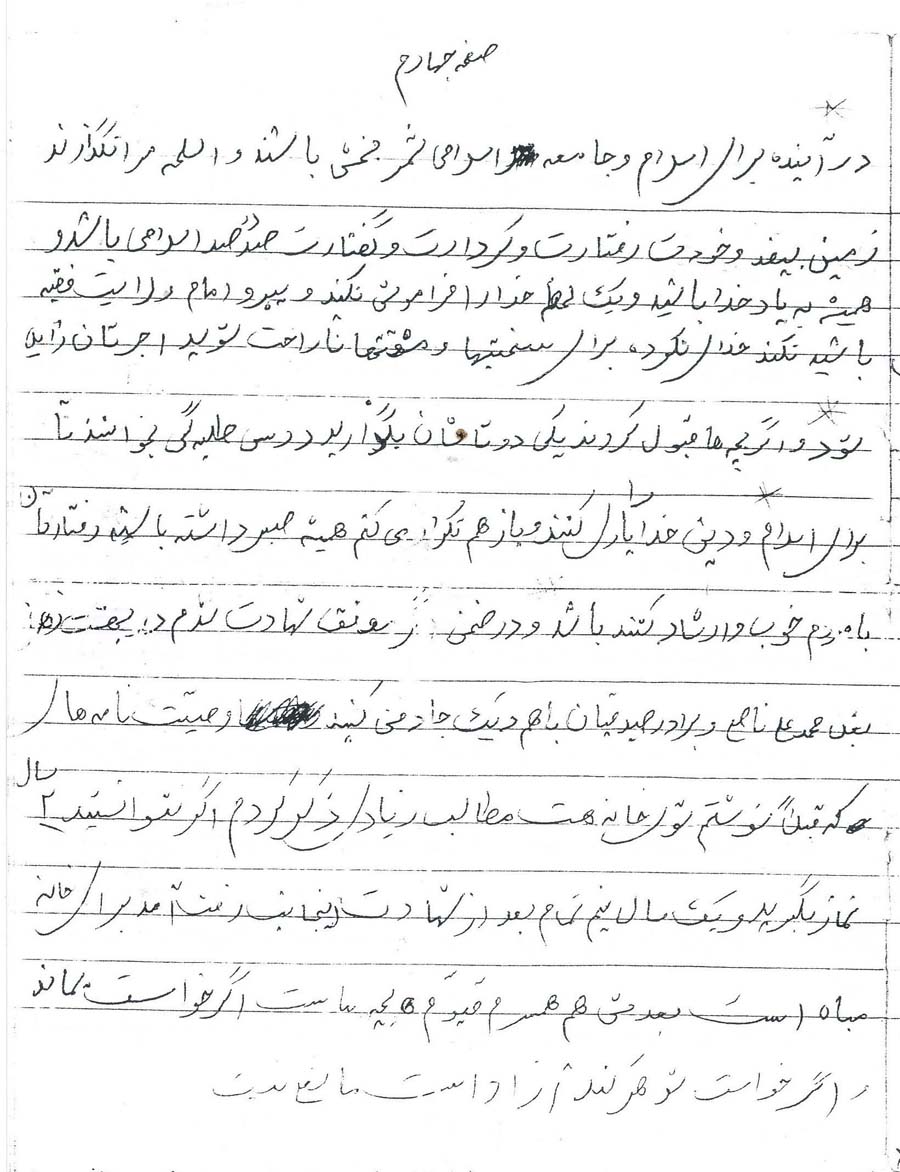 صفحه چهارم
در آینده برای اسلام و جامعه اسلامی ثمر بخش باشند و اسلحه مرا نگذارند
زمین بیفتد و خودت رفتارت و کردارت و گفتارت صد در صد اسلامی باشد و
همیشه به یاد خدا باشید و یک لحظه خدا را فراموش نکنند و پیرو امام ولایت فقیه
باشید نکند خدای نکرده برای سختیها و مشقتها ناراحت شوید اجرتان زایل
شود و اگر بچه ها قبول کردند یکی دو تا شان بگذارید درس طلبه گی بخوانند تا
برای اسلام و دین خدا را یاری کنند و باز هم تکرار می کنم همیشه صبر داشته باشید رفتارتان
با مردم خوب و ارشاد کننده باشد و در ضمن موفق شهادت شدم در بهشت
بغل محمد علی ناصح و برادر صیدقیان با هم دیگ جا دفن کنید وصیت نامه های
که قبلاً نوشتم توی خانه هست مطالب زیادی ذکر کردم اگر توانستید ۲ سال
نماز بگیرید و یک سال نیم تمام بعد از شهادت اینجانب رفت آمد برای خانه
مباه است بعدش هم همسرم قیوم بچه هاست اگر خواست بماند
و اگر خواست شوهر کند آزاد است مانع نیست